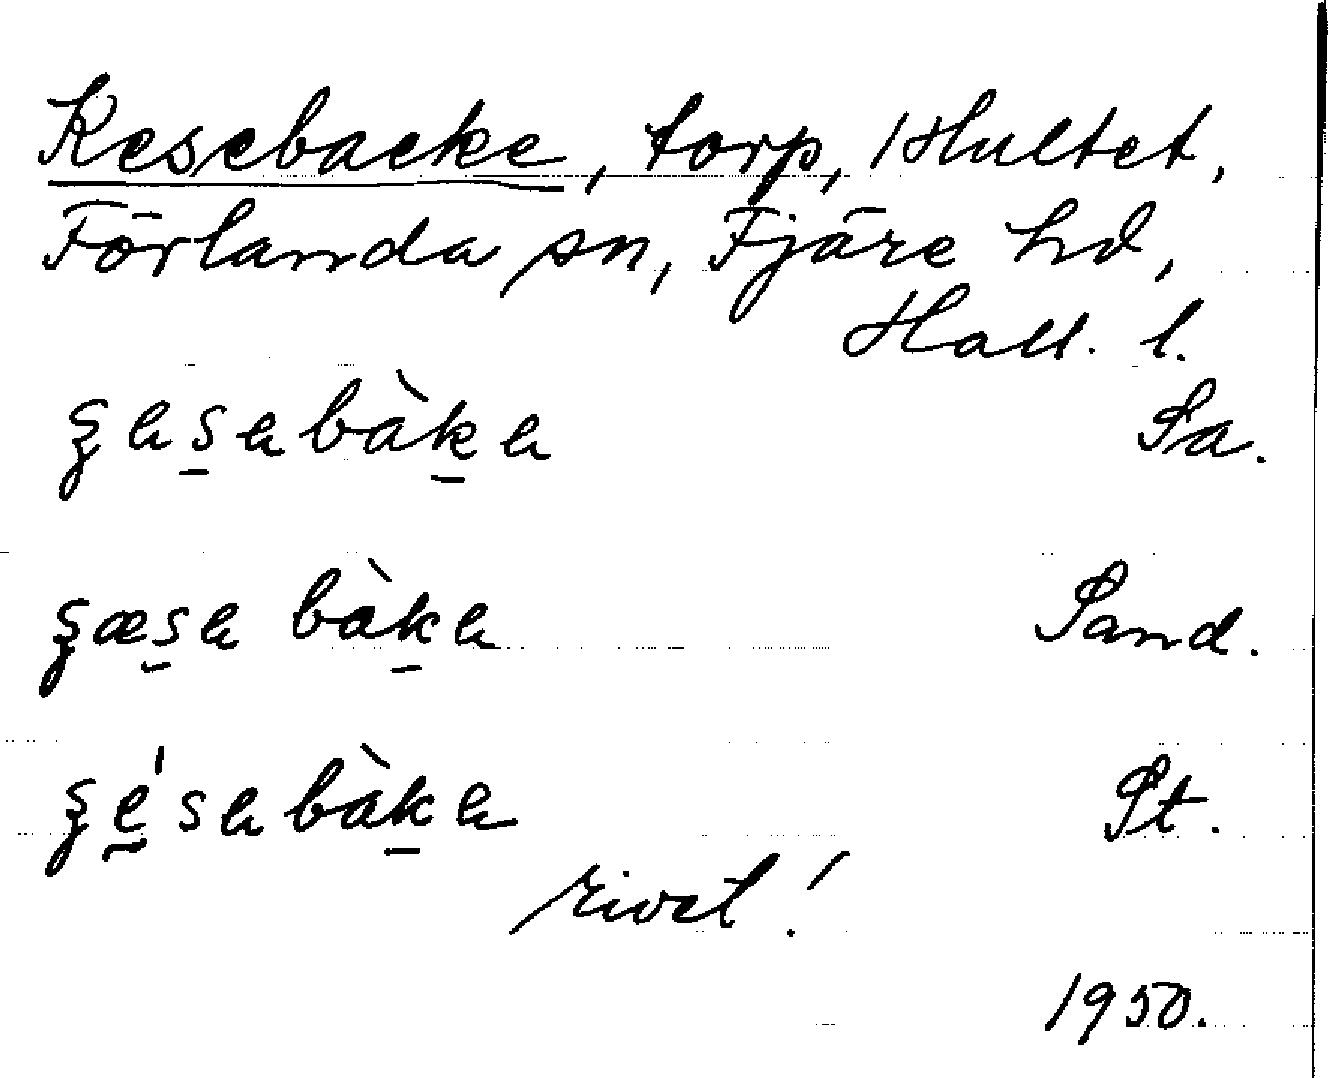 Kesebacke, torp, Hultet,
Förlanda sn, Fjäre hd,
Hall. l.
ȿesebàke Sa.
ȿæse bàke Sand.
ȿe'sebàke St.
rivet!
1950.